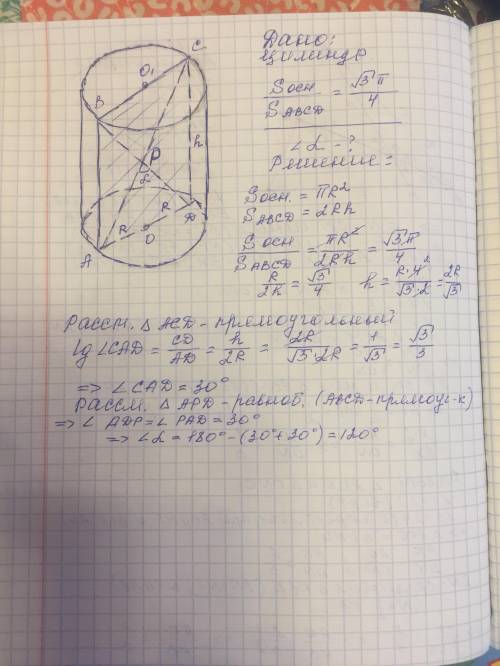 Дано:
цилиндр
Sосн / SABCD = √3 π / 4
∠α - ?
Решение:
Sосн. = πR²
SABCD = 2Rh
Sосн / SABCD = πR² / 2Rh = √3 π / 4
R / 2h = √3 / 4   h = R·4² / √3·2 = 2R / √3
C
O₁
B
h
P
α
R
R
D
A
O
Рассм. △ ACD - прямоугольный
tg ∠CAD = CD / AD = h / 2R = 2R / √3·2R = 1 / √3 = √3 / 3
=> ∠CAD = 30°
Рассм. △ APD - равноб. (ABCD - прямоуг-к)
=> ∠ ADP = ∠ PAD = 30°
=> ∠α = 180° - (30° + 30°) = 120°